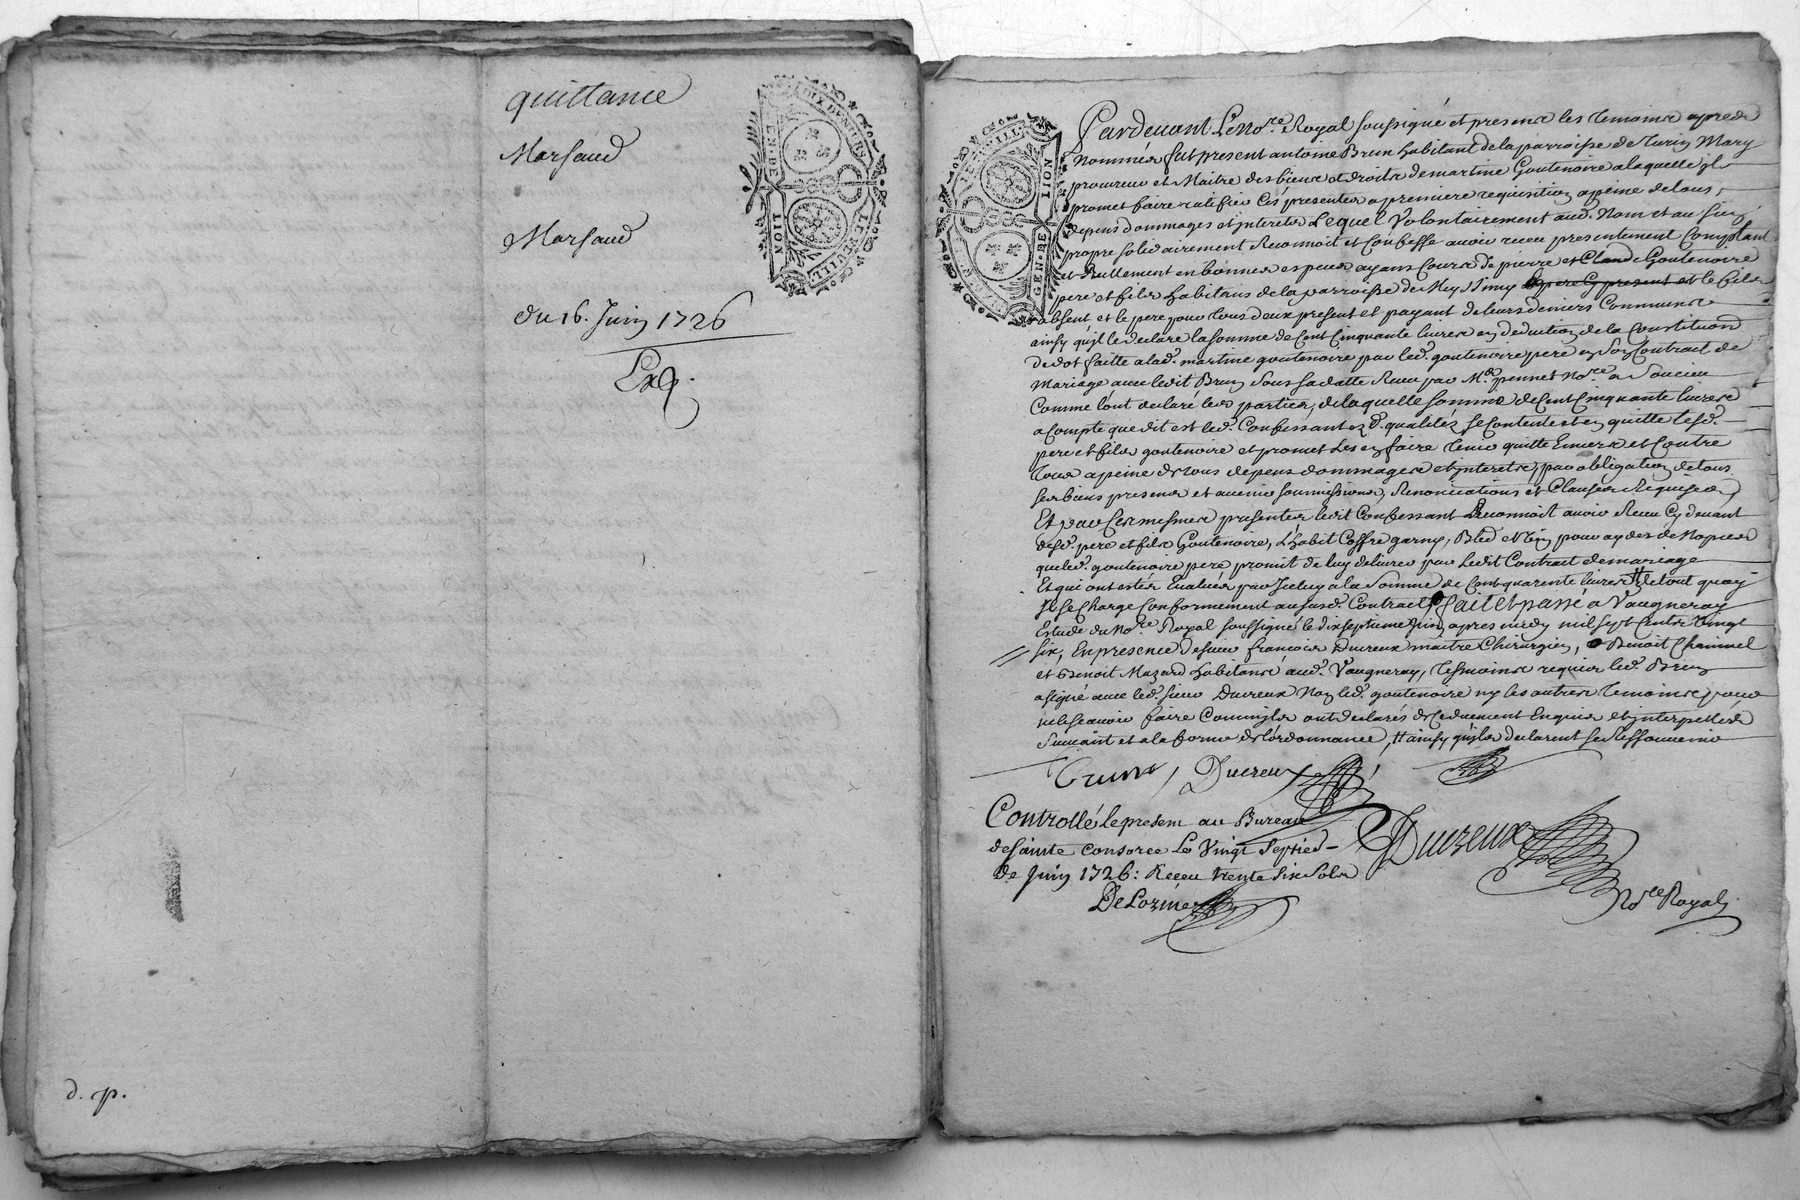 quittance
Marsaud
Marsaud
du 16. Juin 1726
Exp.
d. p.
DIX DENIERS
LEPEVILLE
GEN DE
LION
LION
GEN DE
Pardevant Le No.re Royal soussigné et presens les temoins apres
nommés fut present antoine Brun habitant de la parroisse de Mary
procureur et Maitre des biens et droits de martine Goutenoire a laquelle jl
promet faire ratiffier Ces presentes a premiere requisition a peine de tous
depens dommages et jnterets Lequel Volontairement aud. Nom et au sien
propre solidairement Reconnoit et Confesse avoir receu presentement Comptant
et Reellement en bonnes especes ayans Cours de pierre et Claude Goutenoire
pere et fils habitans de la parroisse de le pere Cy present et le fils
absent et le pere pour tous deux present et payant de leurs deniers Communs
ainsy qu'jl le declare la somme de Cent Cinquante livres en deduction de la Constitution
de dot faitte a lad. martine goutenoire par led. goutenoire pere en son Contrat de
Mariage avec ledit Brun sous sa datte Receu par M.e pennet No.re a Soucieu
Comme l'ont declaré les parties, de laquelle somme de Cent Cinquante livres
a Compte que dit est led. Confessant ez d. qualitez se Contente et en quitte lesd.
pere et fils goutenoire et promet les en faire tenir quitte Envers et Contre
tous a peine de tous depens dommages et jnterets, par obligation de tous
ses biens presens et avenir soumissions, Renonciations et Clauses Requises
Et par Ces mesmes presentes ledit Confessant Reconnoit avoir Receu Cy devant
desd. pere et fils Goutenoire, L'habit Coffre garny, Bled et Vin pour aydes de Nopces
que led. goutenoire pere promit de luy delivrer par Ledit Contrat de mariage
Et qui ont estés Evalués par Jceluy a la Somme de Cent quarente livres # de tout quoy
Jl se Charge Conformement au susd. Contract, fait et passé a Vaugneray
Estude du No.re Royal soussigné le dix septieme Juin apres midy mil sept Cents Vingt
six, En presence de sieur françois Ducreux maitre Chirurgien, Benoit Charmel
et Benoit Mazard habitans aud. Vaugneray, tesmoins requis led. Brun
a signé avec led. sieur Ducreux Non led. goutenoire ny les autres temoins pour
ne le scavoir faire Comm'jls ont declarés de Ce duement Enquis et interpellés
Suivant et a la forme de l'ordonnance, # ainsy qu'jls declarent se Ressouvenir
Brun Ducreux
Controllé le present au Bureau
de sainte Consorce Le Vingt Sept
de Juin 1726: Receu trente six sols
DeLorme
Ducreux
No.re Royal